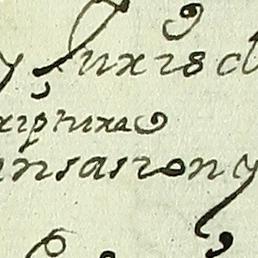 y Juxis d
xiptuxa
ansasion y